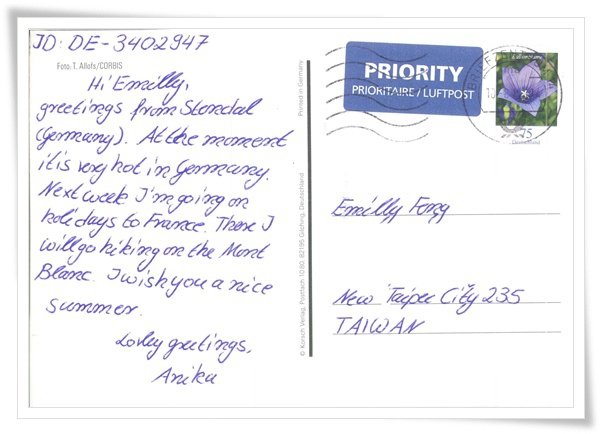 ID: DE-3402947
Foto: T. Allofs/CORBIS
Hi Emilly,
greetings from Stendal
(Germany). At the moment
it is very hot in Germany.
Next week I'm going on
holidays to France. There I
will go hiking on the Mont
Blanc. I wish you a nice
summer.
Lovley greetings,
Anika
Printed in Germany
© Korsch Verlag, Postfach 10 80, 82195 Gilching, Deutschland
PRIORITY
PRIORITAIRE / LUFTPOST
75
Deutschland
Emilly Fong
New Taipei City 235
TAIWAN